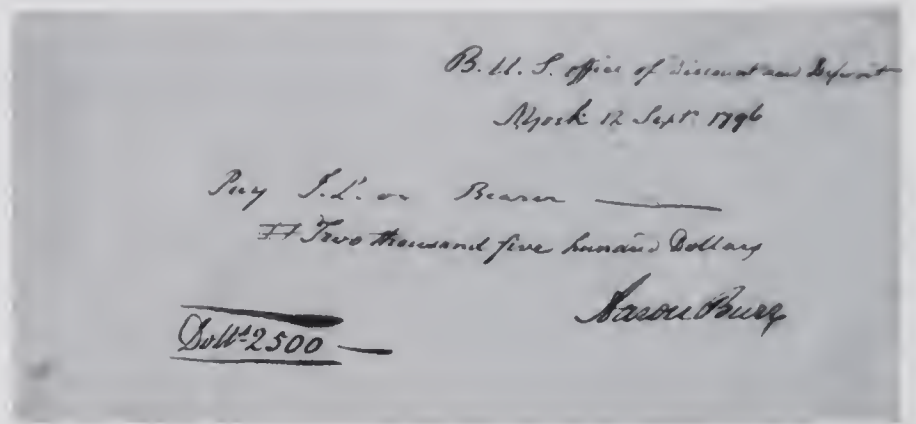 B. U. S. office of discount and Deposit
NYork 12 Sept. 1796
Pay I. L. or Bearer
Two thousand five hundred Dollars
Aaron Burr
Dolls 2500